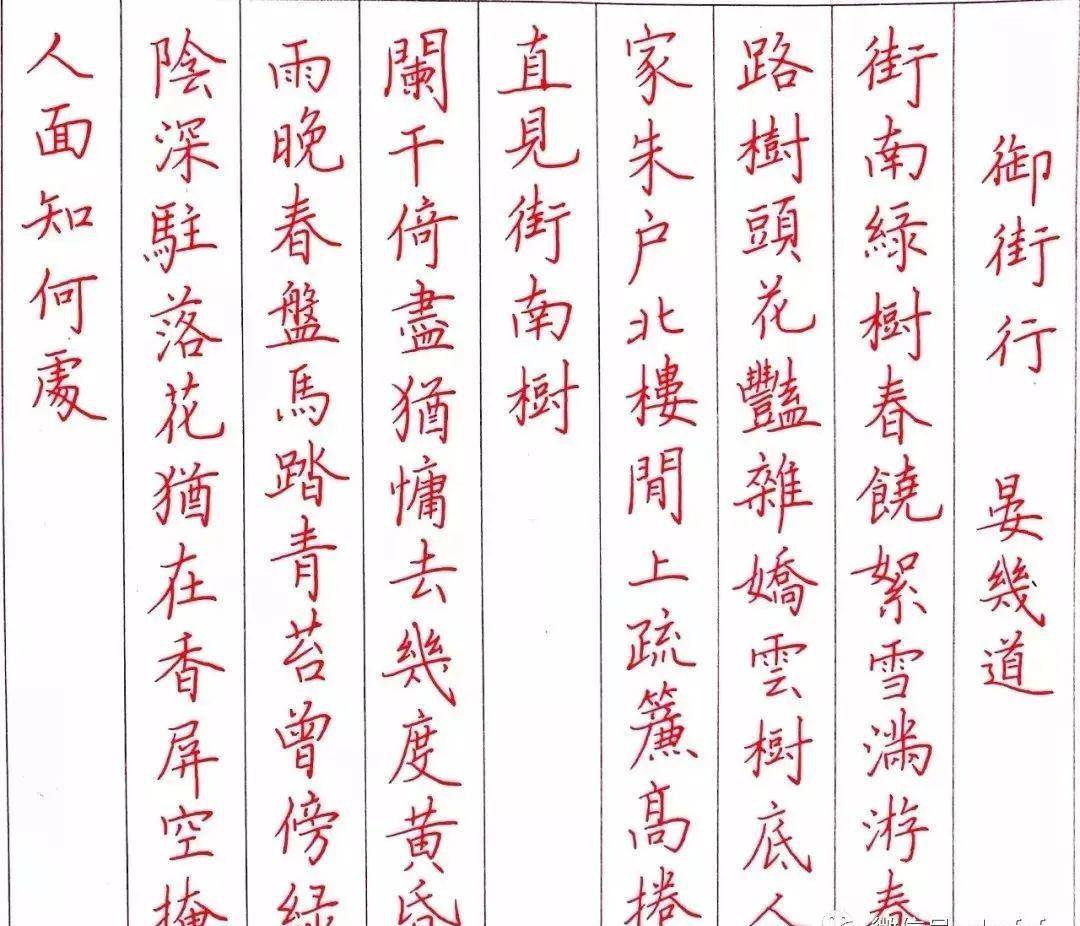 御街行 晏幾道
街南緑樹春饒絮雪滿游春
路樹頭花豔雜嬌雲樹底人
家朱户北樓閒上疏簾高捲
直見街南樹
闌干倚盡猶慵去幾度黄昏
雨晚春盤馬踏青苔曾傍緑
陰深駐落花猶在香屏空掩
人面知何處